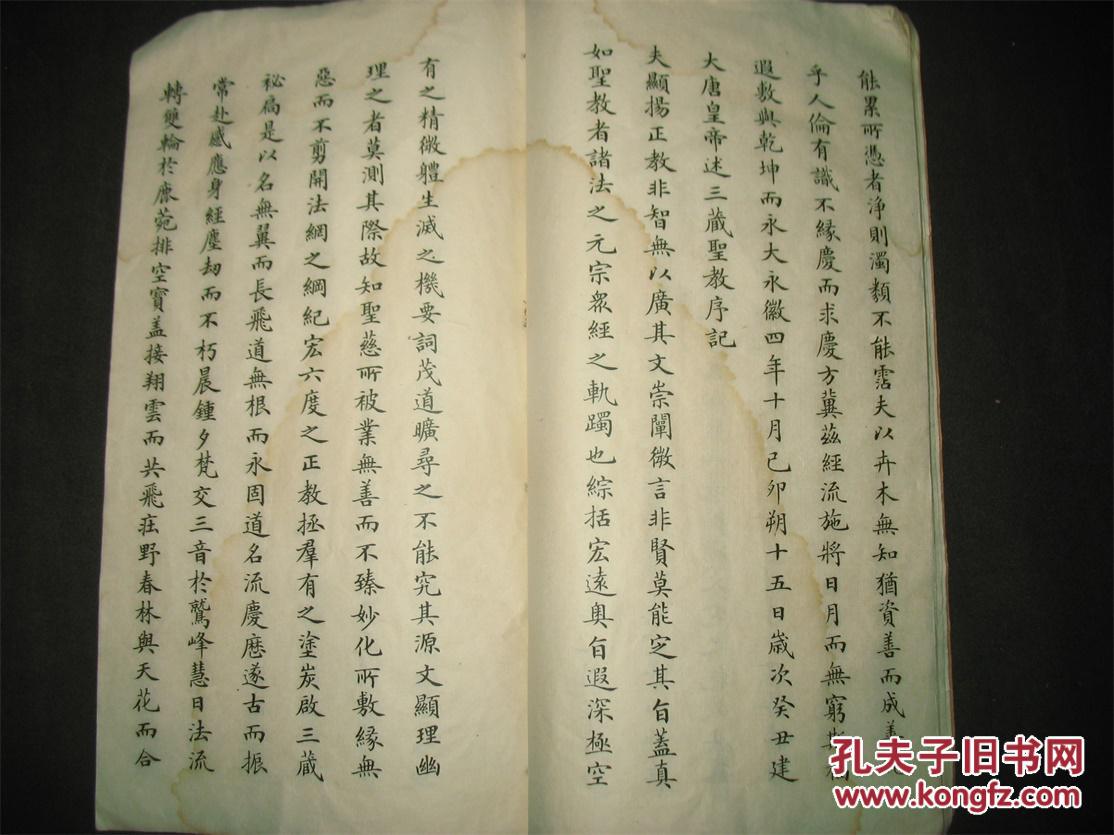 能累所憑者淨則濁類不能霑夫以卉木無知猶資善而成善
乎人倫有識不緣慶而求慶方冀茲經流施將日月而無窮斯
遐敷與乾坤而永大永徽四年十月己卯朔十五日歲次癸丑建
大唐皇帝述三藏聖教序記
夫顯揚正教非智無以廣其文崇闡微言非賢莫能定其旨蓋真
如聖教者諸法之元宗眾經之軌躅也綜括宏遠奧旨遐深極空
有之精微體生滅之機要詞茂道曠尋之不能究其源文顯理幽
理之者莫測其際故知聖慈所被業無善而不臻妙化所敷緣無
惡而不剪開法網之綱紀宏六度之正教拯羣有之塗炭啟三藏
祕扃是以名無翼而長飛道無根而永固道名流慶歷遂古而振
常赴感應身經塵劫而不朽晨鍾夕梵交三音於鷲峰慧日法流
轉雙輪於鹿菀排空寶盖接翔雲而共飛莊野春林與天花而合
孔夫子旧书网
www.kongfz.com